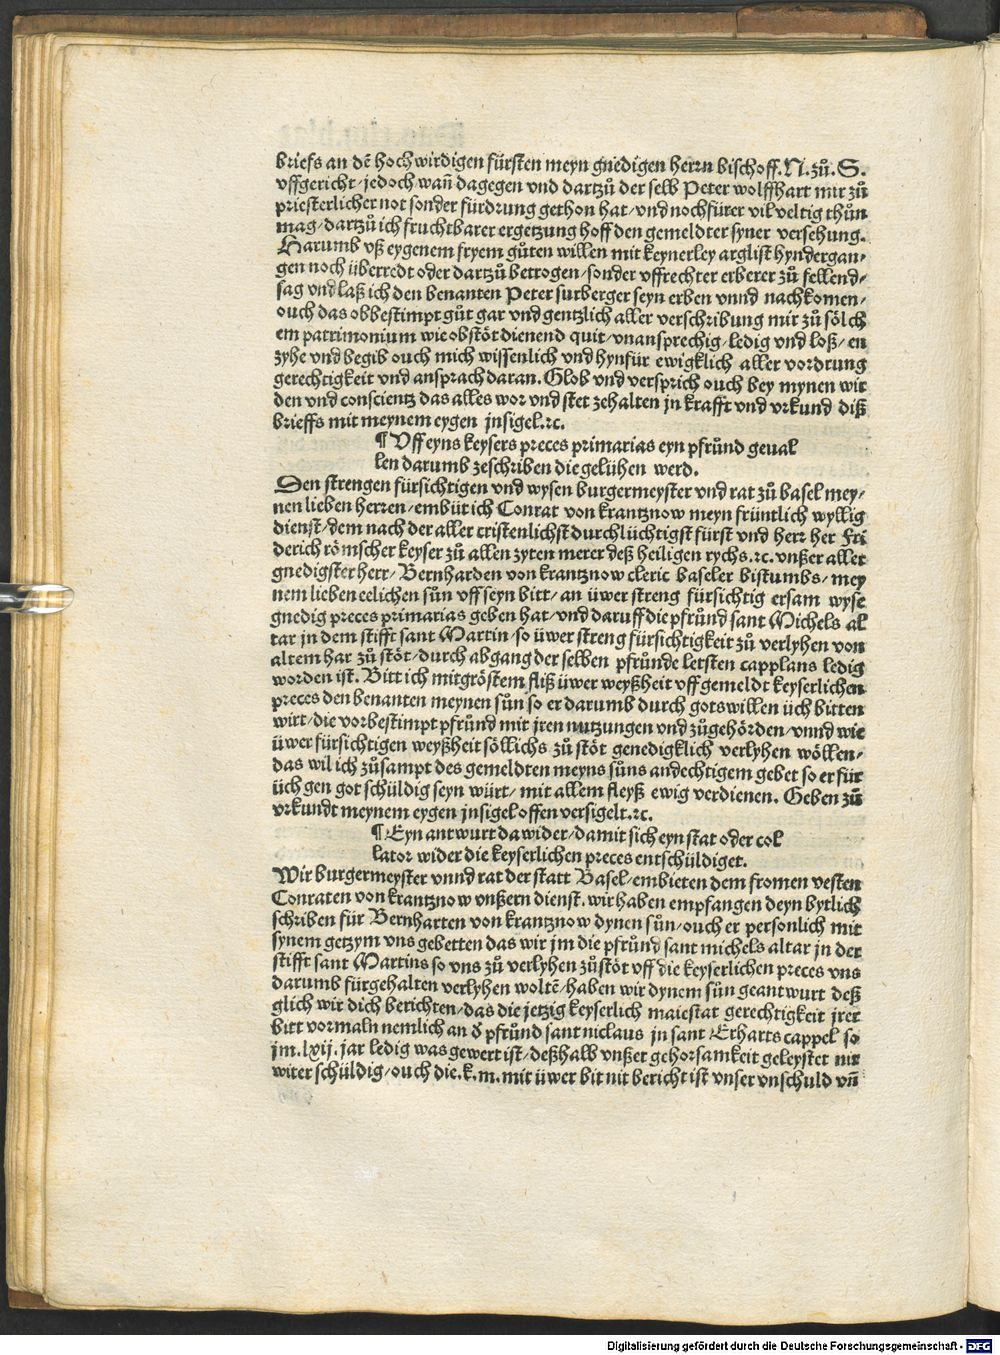 briefs an dē hochwirdigen fürsten meyn gnedigen herrn bischoff. N. zů. S.
vffgericht/jedoch wañ dagegen vnd dartzů der selb Peter wolffhart mir zů
priesterlicher not sonder fürdrung gethon hat/vnd nochfürer vil veltig thůn
mag/dartzů ich fruchtbarer ergetzung hoff den gemeldter syner versehung.
Harumb vß eygenem fryem gůten willen mit keynerley arglist hyndergan/
gen noch überredt oder dartzů betrogen/sonder vffrechter erberer zů fellend/
sag vnd laß ich den benanten Peter surberger seyn erben vnnd nachkomen/
ouch das obbestimpt gůt gar vnd gentzlich aller verschribung mir zů sölch
em patrimonium wie obstöt dienend quit/vnansprechig/ledig vnd loß/en
zyhe vnd begib ouch mich wissenlich vnd hynfür ewigklich aller vordrung
gerechtigkeit vnd ansprach daran. Glob vnd versprich ouch bey mynen wir
den vnd conscientz das alles wor vnd stet zehalten jn krafft vnd vrkund diß
brieffs mit meynem eygen jnsigel.ꝛc.
¶ Vff eyns keysers preces primarias eyn pfrůnd geual
len darumb zeschriben die gelühen werd.
Den strengen fürsichtigen vnd wysen burgermeyster vnd rat zů basel mey/
nen lieben herren/embüt ich Conrat von krantznow meyn früntlich wyllig
dienst/dem nach der aller cristenlichst durchlüchtigst fürst vnd herr her Fri
derich römscher keyser zů allen zyten merer deß heiligen rychs.ꝛc. vnßer aller
gnedigster herr/Bernharden von krantznow cleric baseler bistumbs/mey
nem lieben eelichen sůn vff seyn bitt/an üwer streng fürsichtig ersam wyse
gnedig preces primarias geben hat/vnd daruff die pfrůnd sant Michels al
tar jn dem stifft sant Martin/so üwer streng fürsichtigkeit zů verlyhen von
altem har zů stöt/durch abgang der selben pfründe letsten capplans ledig
worden ist. Bitt ich mit gröstem fliß üwer weyßheit vff gemeldt keyserlichen
preces den benanten meynen sůn so er darumb durch gots willen üch bitten
wirt/die vorbestimpt pfrůnd mit jren nutzungen vnd zůgehörden/vnnd wie
üwer fürsichtigen weyßheit söllichs zů stöt genedigklich verlyhen wöllen/
das wil ich zůsampt des gemeldten meyns sůns andechtigem gebet so er für
üch gen got schüldig seyn würt/mit allem fleyß ewig verdienen. Geben zů
vrkundt meynem eygen jnsigel offen versigelt.ꝛc.
¶ Eyn antwurt da wider/damit sich eyn stat oder col
lator wider die keyserlichen preces entschüldiget.
Wir burgermeyster vnnd rat der statt Basel/embieten dem fromen vesten
Conraten von krantznow vnßern dienst. wir haben empfangen deyn bytlich
schriben für Bernharten von krantznow dynen sůn/ouch er personlich mit
synem getzym vns gebetten das wir jm die pfrůnd sant michels altar jn der
stifft sant Martins so vns zů verlyhen zůstöt vff die keyserlichen preces vns
darumb fürgehalten verlyhen woltē/haben wir dynem sůn geantwurt deß
glich wir dich berichten/das die jetzig keyserlich maiestat gerechtigkeit jrer
bitt vormaln nemlich an ď pfrůnd sant niclaus jn sant Erharts cappel so
jm.lxij. jar ledig was gewert ist/deßhalb vnßer gehorsamkeit geleystet nit
witer schüldig/ouch die.k.m. mit üwer bit nit bericht ist vnser vnschuld vñ
Digitalisierung gefördert durch die Deutsche Forschungsgemeinschaft - DFG